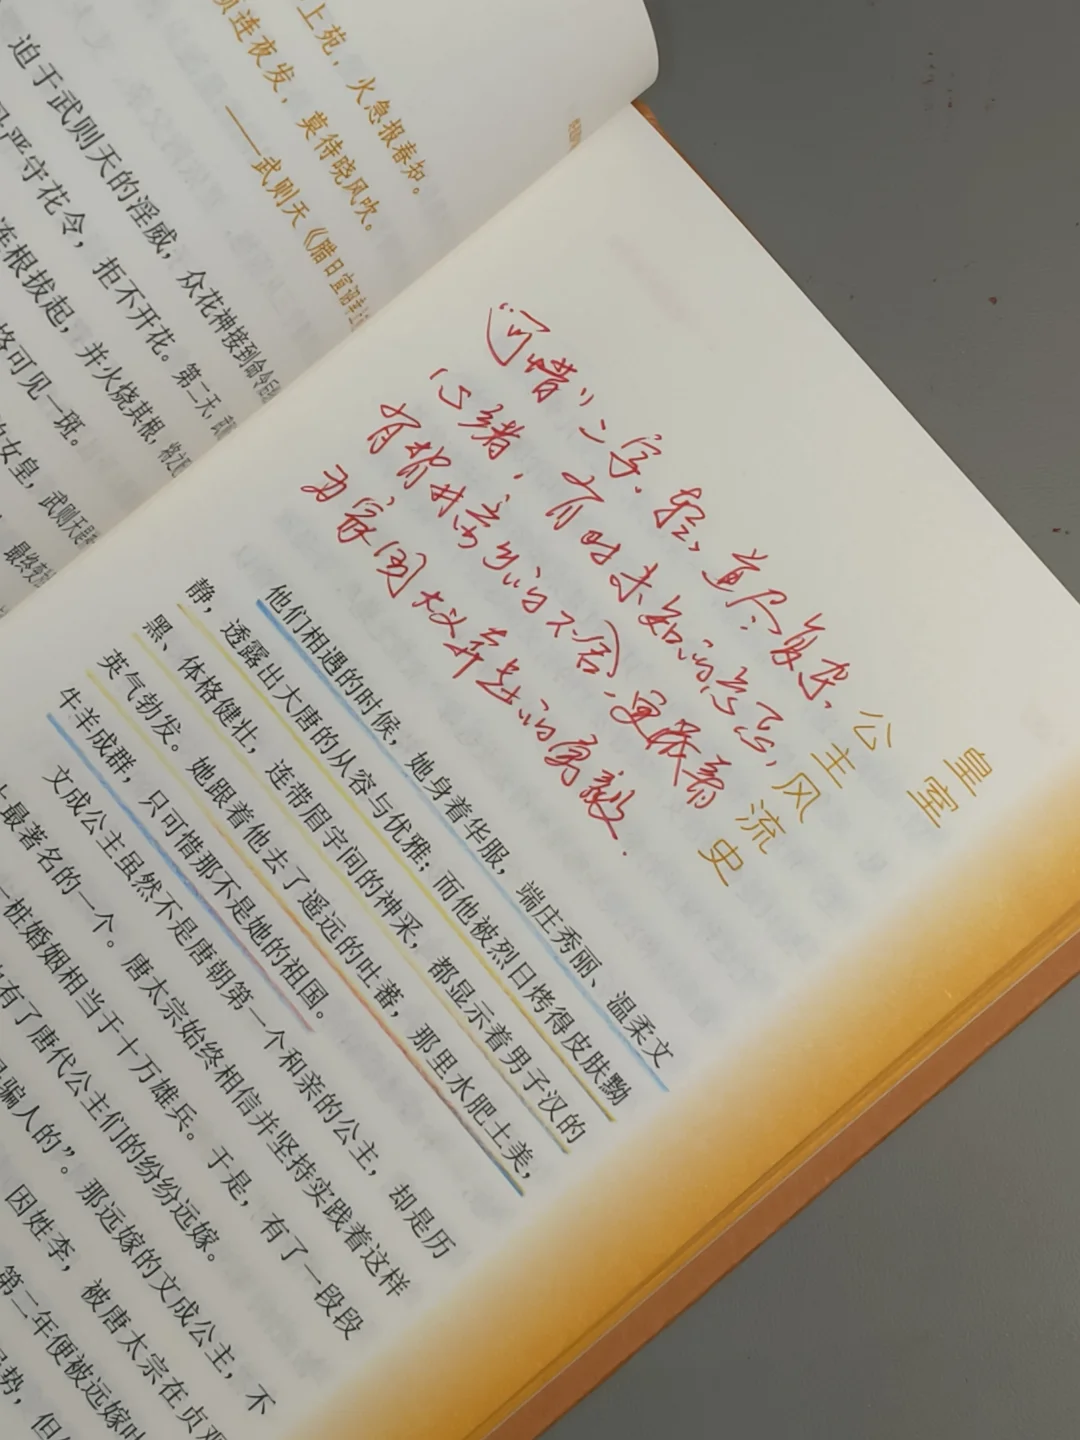 上苑，火急报春知。
连夜发，莫待晓风吹。
——武则天《腊日宣诏幸上
迫于武则天的淫威，众花神接到命令后
严守花令，拒不开花。第二天，武
连根拔起，并火烧其根，将之贬
格可见一斑。
女皇，武则天是
最终
“可惜”二字，轻，道尽复杂
心绪，有对未知的忐忑，
有楷对亲的不舍，更深着
为家国大义奔赴的勇毅.
皇室
公主风流史
他们相遇的时候，她身着华服，端庄秀丽、温柔文
静，透露出大唐的从容与优雅；而他被烈日烤得皮肤黝
黑、体格健壮，连带眉宇间的神采，都显示着男子汉的
英气勃发。她跟着他去了遥远的吐蕃，那里水肥土美，
牛羊成群，只可惜那不是她的祖国。
文成公主虽然不是唐朝第一个和亲的公主，却是历
上最著名的一个。唐太宗始终相信并坚持实践着这样
一桩婚姻相当于十万雄兵。于是，有了一段段
有了唐代公主们的纷纷远嫁。
骗人的”。那远嫁的文成公主，不
因姓李，被唐太宗在贞观
第二年便被远嫁吐
势，但